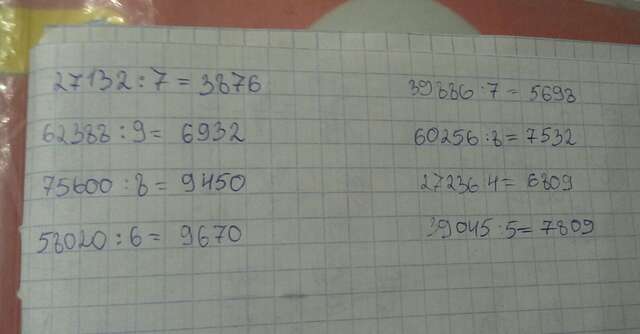 27132 : 7 = 3876
62388 : 9 = 6932
75600 : 8 = 9450
58020 : 6 = 9670
39886 : 7 = 5698
60256 : 8 = 7532
27236 : 4 = 6809
39045 : 5 = 7809